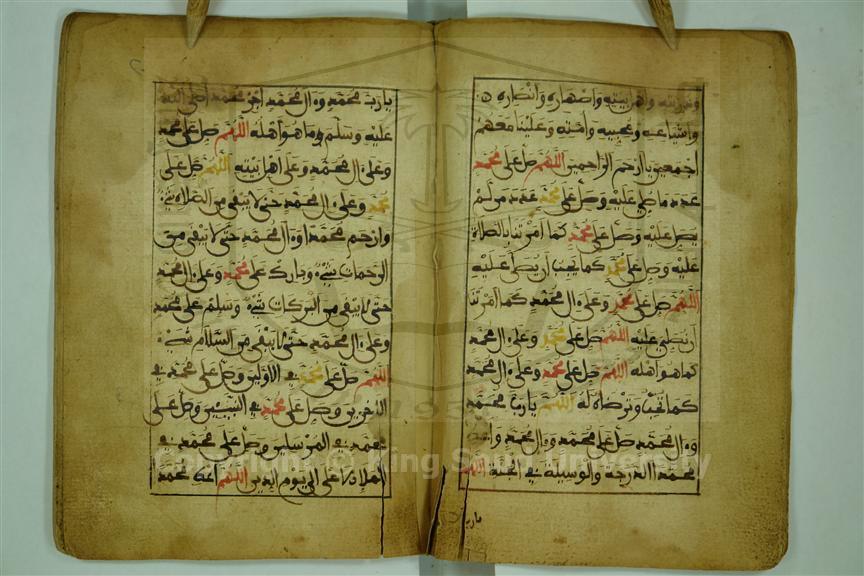 وذريته واهل بيته واصهاره وانصاره
واشياعه ومحبيه وامته وعلينا معهم
اجمعين يا ارحم الراحمين اللهم صل على محمد
عدد ما صلي عليه وصل على محمد عدد من لم
يصل عليه وصل على محمد كما امرتنا بالصلاة
عليه وصل على محمد كما يجب ان يصلى عليه
اللهم صل على محمد وعلى ال محمد كما امرتنا
ان نصلي عليه اللهم صل على محمد وعلى ال محمد
كما هو اهله اللهم صل على محمد وعلى ال محمد
كما تحب وترضاه له اللهم يا رب محمد
وءال محمد صل على محمد وءال محمد واعط
محمدا الدرجة والوسيلة في الجنة اللهم
يا رب
يا رب محمد وءال محمد اجز محمد صلى الله
عليه وسلم ما هو اهله اللهم صل على محمد
وعلى ال محمد وعلى اهل بيته اللهم صل على
محمد وعلى ال محمد حتى لا يبقى من الصلاة شيء
وارحم محمدا وءال محمد حتى لا يبقى من
الرحمات شيء وبارك على محمد وعلى ال محمد
حتى لا يبقى من البركات شيء وسلم على محمد
وعلى ال محمد حتى لا يبقى من السلام شيء
اللهم صل على محمد في الاولين وصل على محمد في
الاخرين وصل على محمد في النبيين وصل على
محمد في المرسلين وصل على محمد في
الملإ الاعلى الى يوم الدين اللهم اعط محمد
Copyright © King Saud University
1957